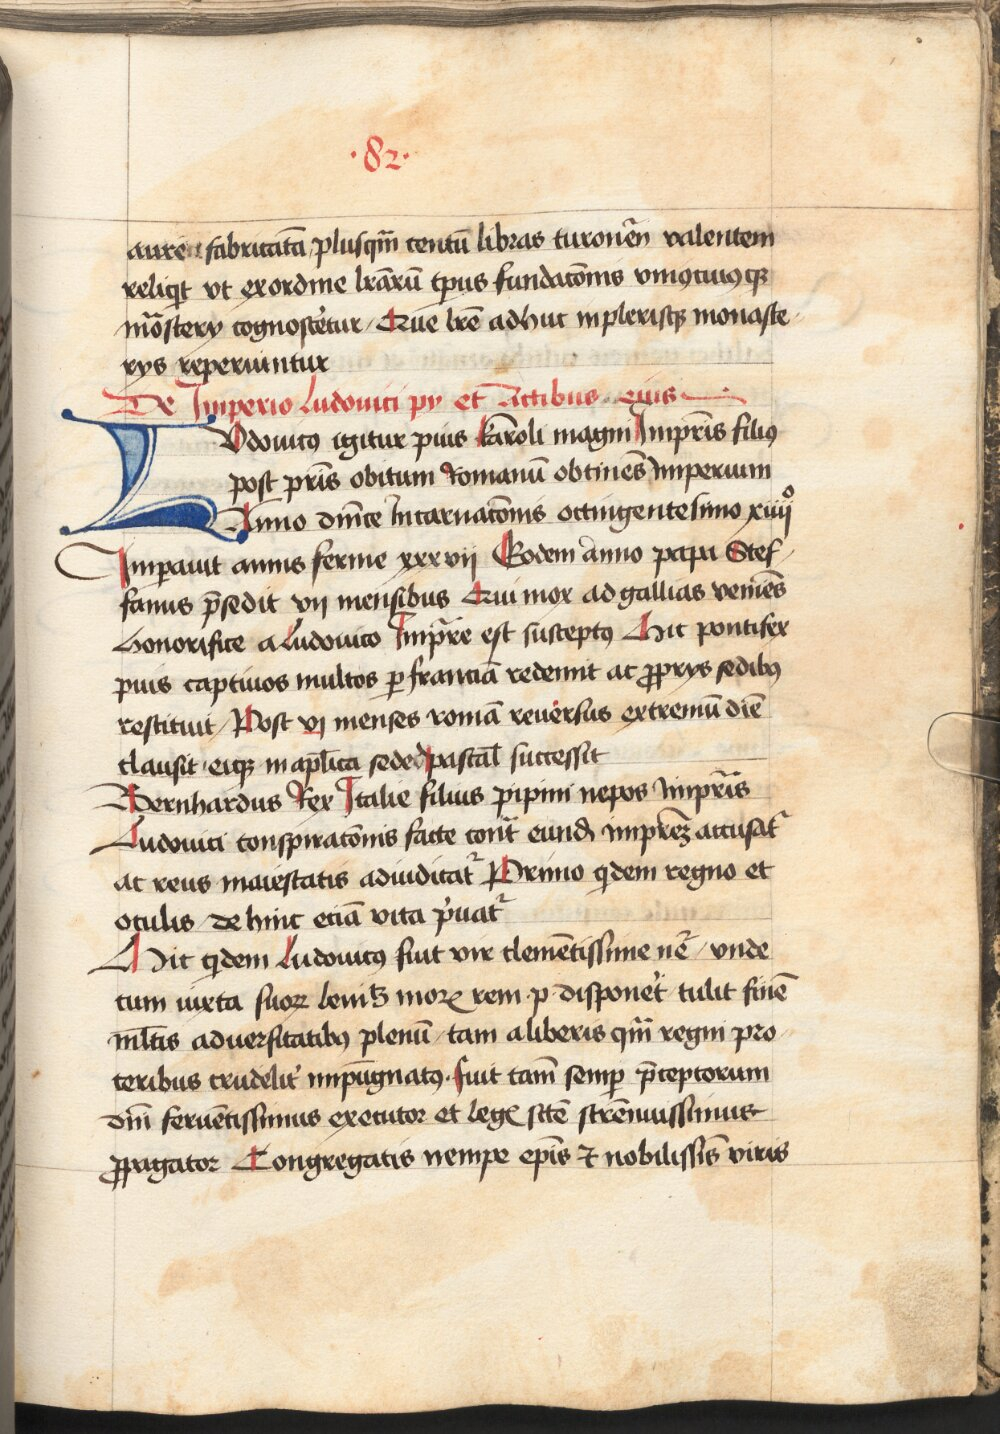 ·82·
auream fabricatā plusqm̄ centū libras turonēn̄ valentem
reliqit vt ex ordine lrārū tp̄us fundatōnis vniꝯcuiꝯqꝫ
mōstery cognoscet̄ur / Que lrē adhuc in plerisqꝫ monaste
rys reperiuntur
De Imperio Ludouici py et Actibus eius
LVdouicꝯ igitur pius karoli magni Impr̄is filiꝯ
post pr̄is obitum Romanū obtinēs Imperium
Anno dn̄ice Incarnatōnis octingentesimo xiiiiº
Imperauit annis ferme xxxvii Eodem anno papa Stef
fanus p̄sedit vii mensibus Qui mox ad gallias veniēs
honorifice a Ludouico Impr̄e est susceptꝯ Hic pontifex
pius captiuos multos ꝑ franciā redemit ac ꝓprys sedibꝯ
restituit / Post vj menses romā reuersus extremū diē
clausit · eiqꝫ in apl̄ica sede pascal̄ successit
Bernhardus Rex Italie filius pipini nepos Impr̄is
Ludouici conspiratōnis facte cont̄ eund̄ imprēꝫ accusat̄
ac reus maiestatis adiudicat̄ Primo qdem regno et
oculis / de hinc etiā vita p̄uat̄
Hic qdem Ludouicꝯ fuit vir clemētissime nē / vnde
cum iuxta suoꝝ leuiꝰ moꝝ rem ·p· disponet̄ tulit finē
ml̄tis aduersitatibꝯ plenū / tam a liberis qm̄ regni pro
ceribus crudelit̄ impūgnatꝯ · fuit tam̄ semꝑ p̄ceptorum
dn̄i feruētissimus executor et legꝫ scē strēnuissimus
ꝓpagator Congregatis nempe ep̄is ⁊ nobilissīs viris